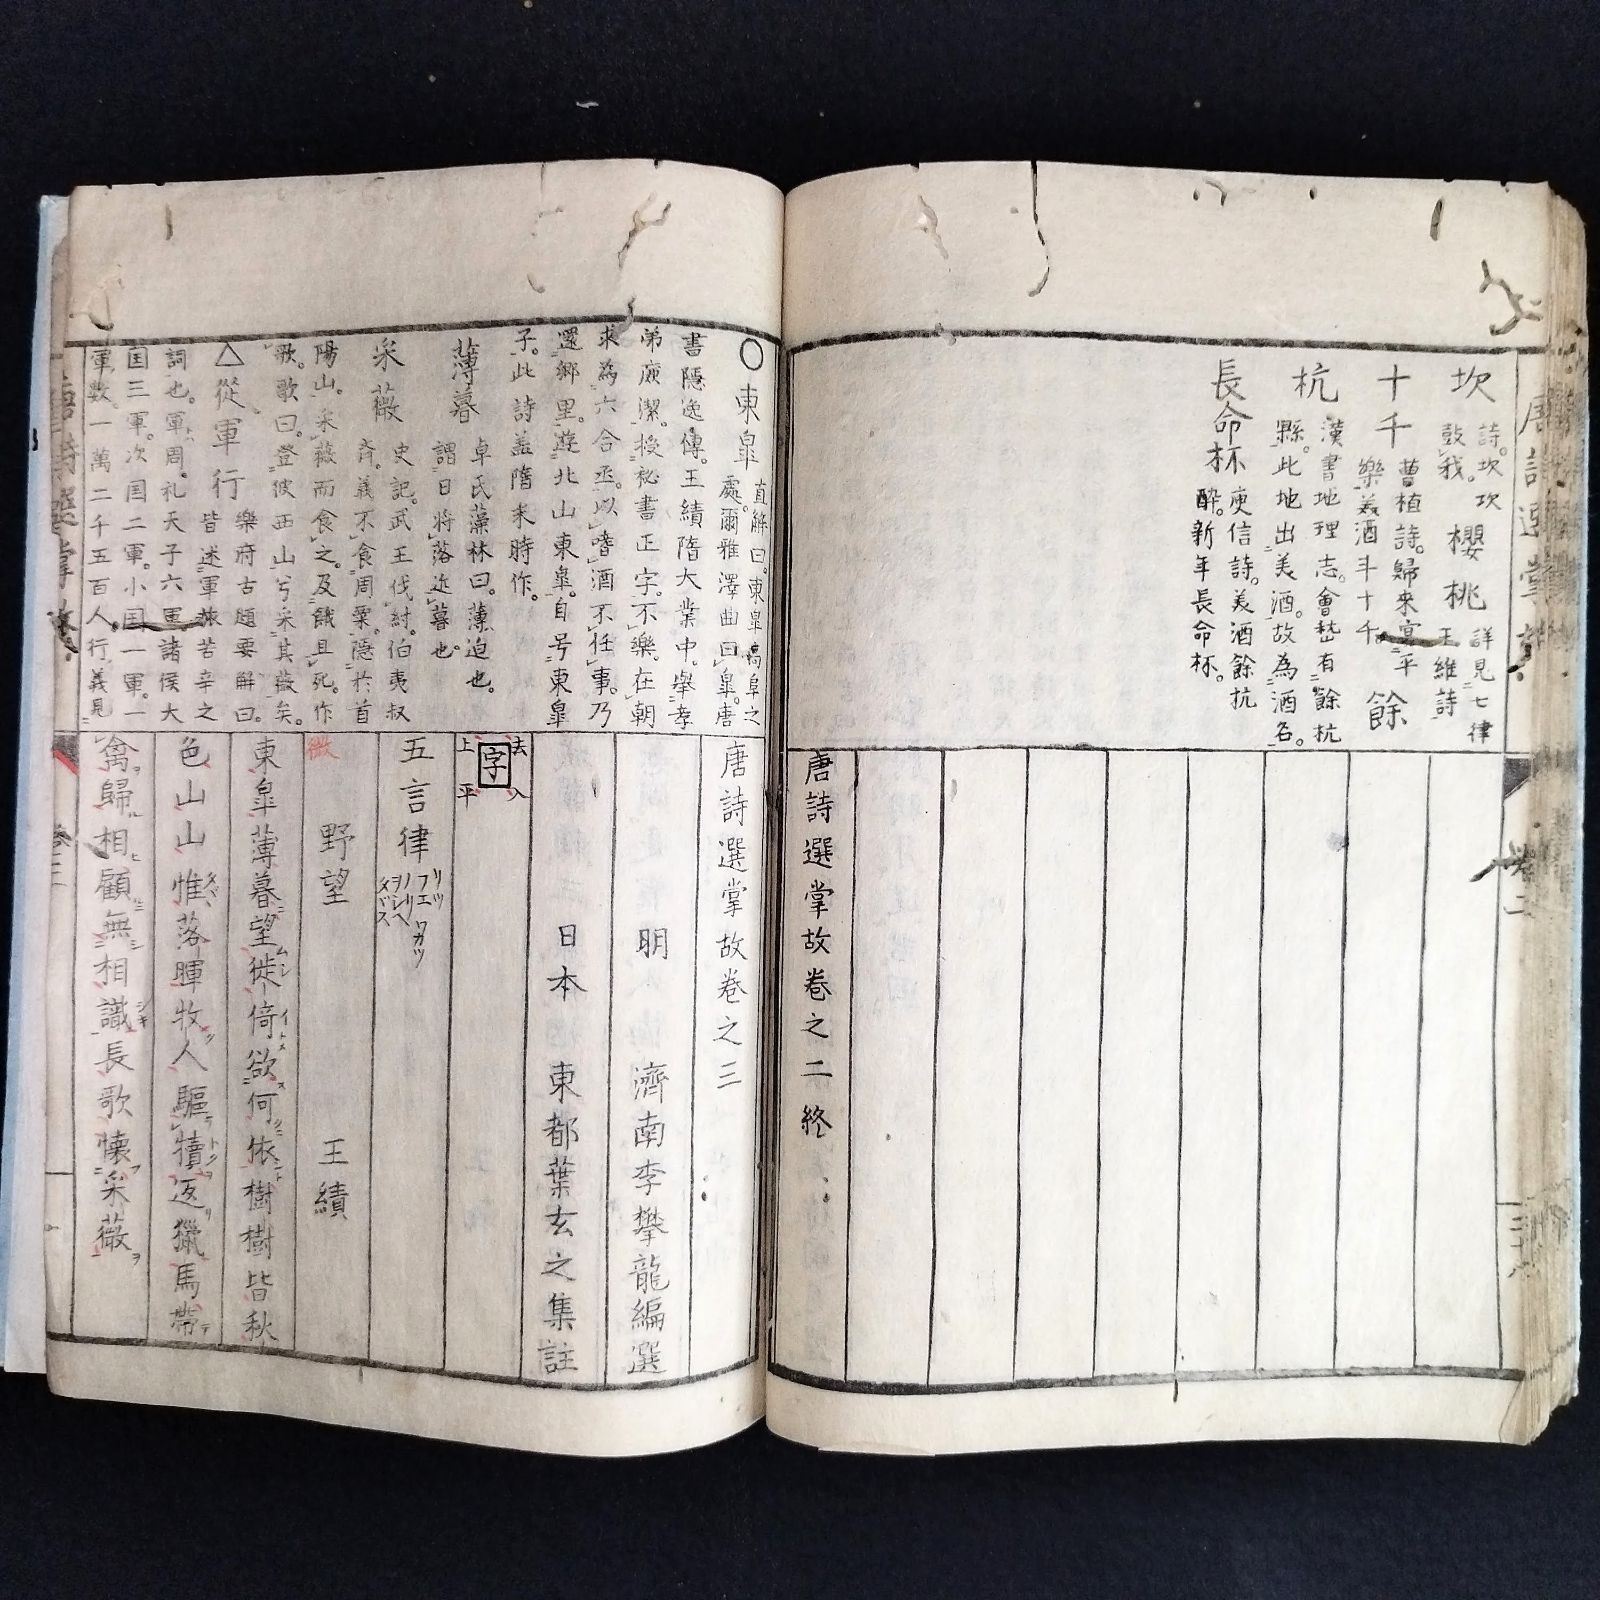 唐詩選掌故
坎 詩。坎坎
鼓我。
櫻桃 詳見七律
王維詩
十千 曹植詩。歸來宴平
樂。美酒斗十千。
餘
杭 漢書地理志。會嵆有餘杭
縣。此地出美酒。故為酒名。
長命杯 庾信詩。美酒餘杭
醉。新年長命杯。
卷二
唐詩選掌故卷之二終
○東皐 直解曰。東皐高阜之
處。爾雅澤曲曰皐。唐
書隱逸傳。王績隋大業中。舉孝
弟廉潔。授秘書正字。不樂。在朝
求為六合丞。以嗜酒不任事。乃
還鄉里。遊北山東皐。自号東皐
子。此詩蓋隋末時作。
薄暮 卓氏藻林曰。薄迫也。
謂日將落近暮也。
采薇 史記。武王伐紂。伯夷叔
齊。義不食周粟。隱於首
陽山。采薇而食之。及餓且死。作
歌。歌曰。登彼西山兮。采其薇矣。
△從軍行 樂府古題要解曰。
皆述軍旅苦辛之
詞也。軍周。礼天子六軍諸侯大
国三軍。次国二軍。小国一軍。一
軍数一萬二千五百人。行義見
唐詩選掌故卷之三
明 濟南李攀龍編選
日本 東都葉玄之集註
去 入
字
上 平
五言律 リツ フエ ワカツ
ノリ ヲシヘ
タバス
微 野望 王績
東皐薄暮望徙倚欲何依樹樹皆秋
色山山惟落暉牧人驅犢返獵馬帶
禽歸相顧無相識長歌懷采薇
唐詩選掌故
卷三